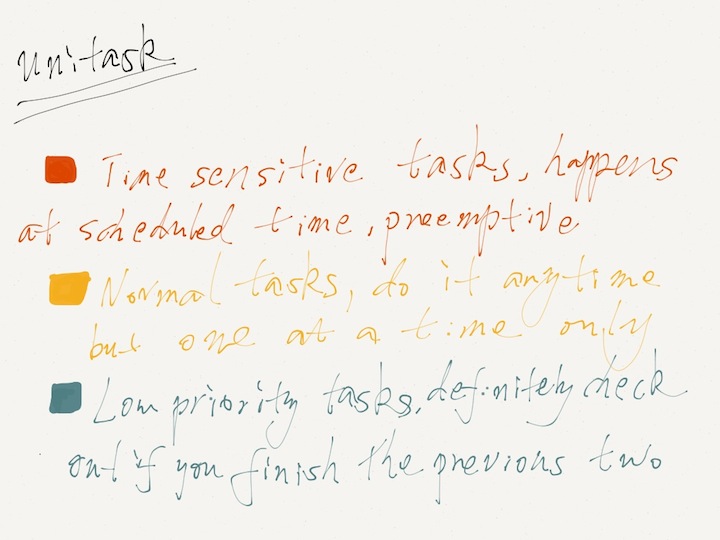 unitask
Time sensitive tasks, happens
at scheduled time, preemptive
Normal tasks, do it anytime
but one at a time only
Low priority tasks, definitely check
out if you finish the previous two